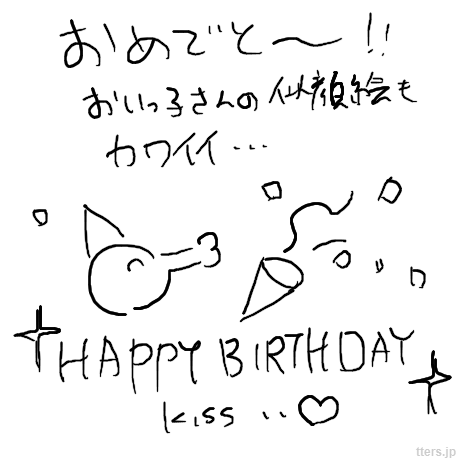 おめでと〜!!
おいっ子さんの似顔絵も
カワイイ…
HAPPY BIRTHDAY
kiss ..♡
tters.jp